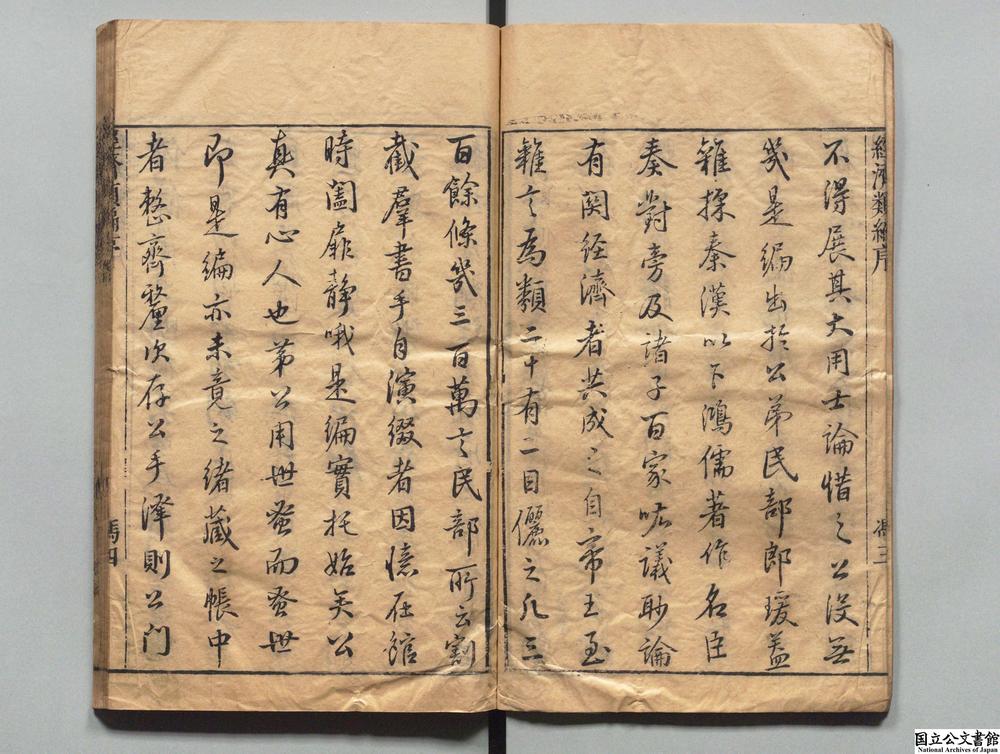 經濟類編序
馮三
不得展其大用士論惜之公沒無
幾是編出於公弟民部郎瑗蓋
雜採秦漢以下鴻儒著作名臣
奏對旁及諸子百家咙議耿論
有関经濟者共成之自帝王至
雜言為類二十有二目儷之凡三
百餘條幾三百萬言民部所云割
截羣書手自演缀者因憶在舘
時闔扉静哦是编實托始矣公
真有心人也第公用世蚤而蚤世
即是编亦未竟之緒藏之帳中
者整齊釐次存公手澤則公门
經濟類編序
馮四
国立公文書館
National Archives of Japan